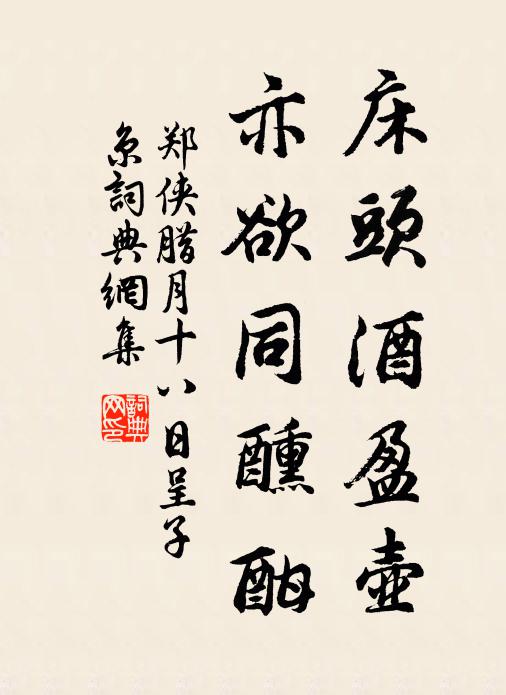 床頭酒盈壺
亦欲同醺酣
郑侠腊月十八日呈子
京詞典網集
詞典
网印